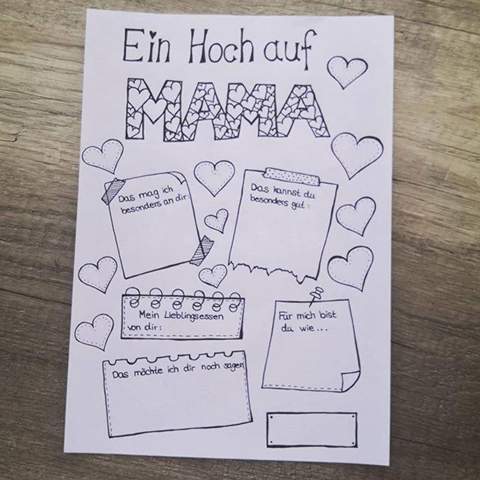 Ein Hoch auf
MAMA
Das mag ich
besonders an dir:
Das kannst du
besonders gut:
Mein Lieblingsessen
von dir:
Für mich bist
du wie...
Das möchte ich dir noch sagen: